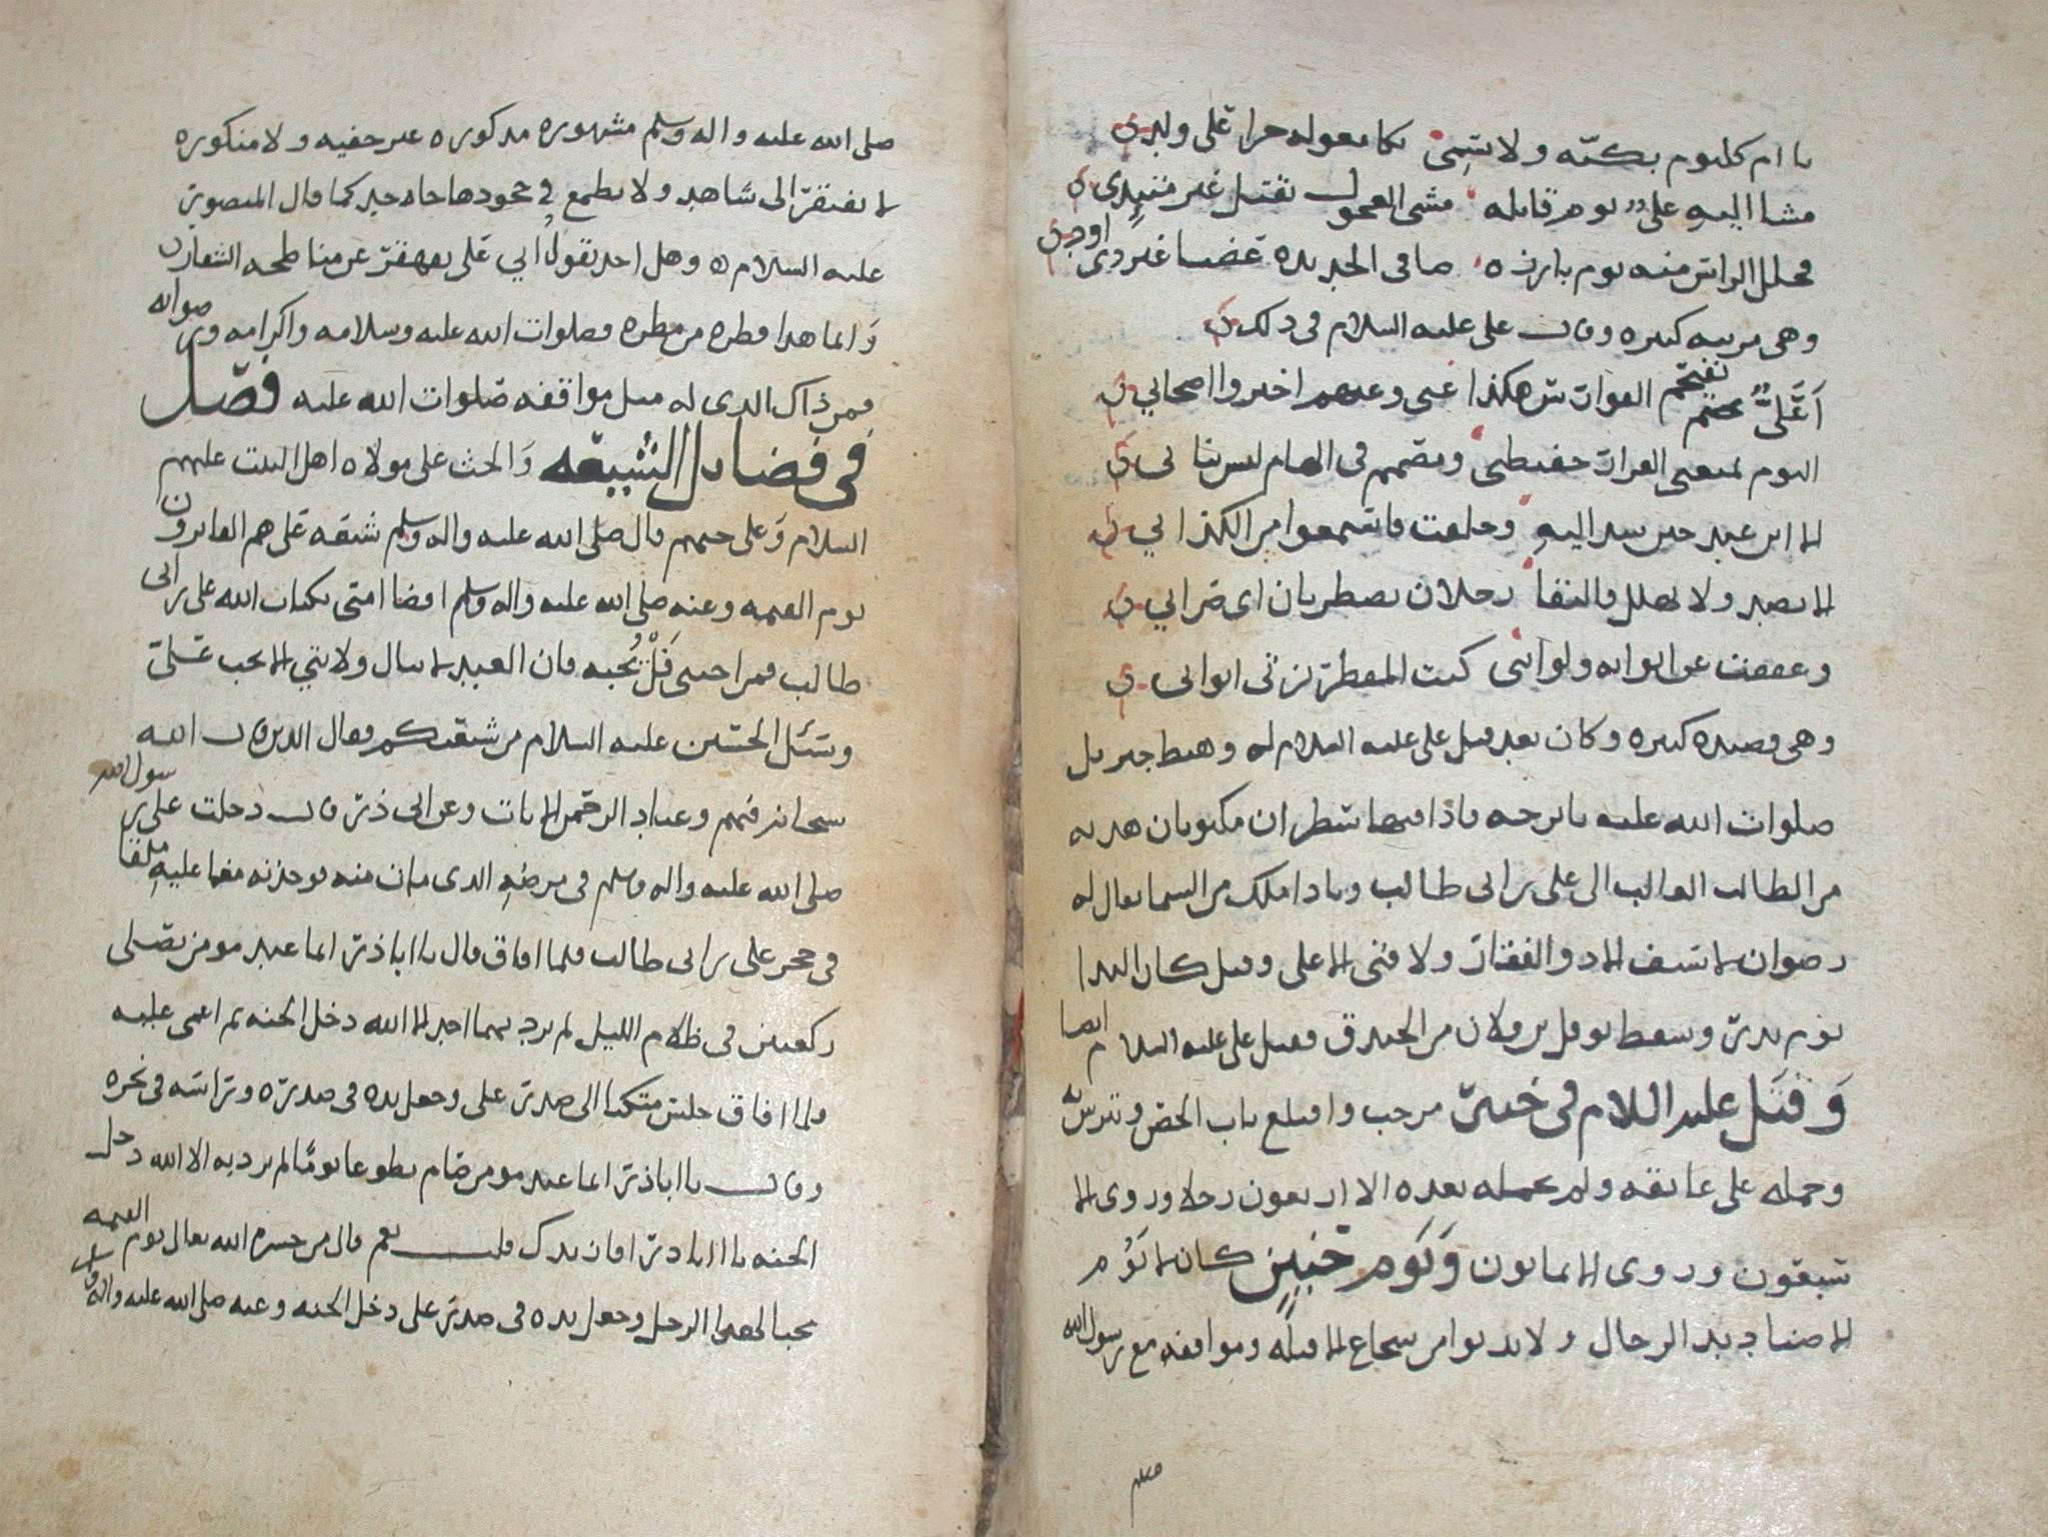 يا ام كلثوم بكيه ولا تسمى بكا معوله حرا على ولد
مشا اليه على يوم قابله مشى العجول بقتل غير متبدى
مجلل الراس منه يوم بارزه صافى الحديده عضبا غير ذى اود
وهى مرثيه كبيره وقال على عليه السلام فى ذلك
أعلىّ تقتحم الفوارس هكذا عنى وعنهم اخبروا اصحابي
اليوم يمنعنى الفرار حفيظتى ومصمم فى الهام ليس بنابى
الا ابن عبد حين شد اليه وحلفت فاستمعوا من الكذابي
الا يصد ولا يهلل فالتقا رجلان يضطربان اى ضرابي
وعففت عن اثوابه ولو اننى كنت المقطر بزنى اثوابى
وهى قصيده كبيره وكان بعد قتل على عليه السلام له وهبط جبريل
صلوات الله عليه باترجه فاذا فيها سطران مكتوبان هديه
من الطالب الغالب الى على بن ابى طالب ونادا ملك من السما يقال له
رضوان لا سيف الا ذو الفقار ولا فتى الا على وقيل كان الندا
يوم بدر وسقط نوفل بن فلان من الخندق فقتل على عليه السلام ايضا
وقتل عليه السلام فى خيبر مرحب واقتلع باب الحصن وتترس به
وحمله على عاتقه ولم يحمله بعده الا اربعون رجلا وروى الا
سبعون وروى الا ثمانون ويوم حنين كان لا يؤم
الا صناديد الرجال ولا يدنوا من شجاع الا قتله ومواقفه مع رسول الله
صلى
صلى الله عليه واله وسلم مشهوره مذكوره غير خفيه ولا منكوره
لا يفتقر الى شاهد ولا يطمع فى جحودها جاحد كما قال المنصور
عليه السلام وهل احد يقول ابي على يقهقر عن مناطحه الشعار
وانما هذا قطره من مطره فصلوات الله عليه وسلامه واكرامه ورضوانه
فمن ذاك الذى له مثل مواقفه صلوات الله عليه فصل
فى فضايل الشيعه والحث على موالاه اهل البيت عليهم
السلام وعلى حبهم قال صلى الله عليه واله وسلم شيعه على هم الفايزون
يوم القيمه وعنه صلى الله عليه واله وسلم اقضا امتى بكتاب الله على بن ابى
طالب فمن احبنى فليحبه فان العبد لا ينال ولايتي الا بحب على
وسئل الحسين عليه السلام من شيعتكم فقال الذين قال الله
سبحانه فيهم وعباد الرحمن الايات وعن ابى ذر قال دخلت على رسول الله
صلى الله عليه واله وسلم فى مرضه الذى مات منه فوجدته مغما عليه ملقا
فى حجر على بن ابى طالب فلما افاق قال يا اباذر ايما عبد مومن يصلى
ركعتين فى ظلام الليل لم يرد بهما احد الا الله دخل الجنه ثم اغمى عليه
ولما افاق جلس متكيا الى صدر على وجعل يده فى صدره وراسه فى نحره
وقال يا اباذر ايما عبد مومن صام تطوعا يوما لم يرد به الا الله دخل
الجنه يا اباذر افازيدك قلت نعم قال من حشره الله تعالى يوم القيمه
محبا لهذا الرجل وجعل يده فى صدر على دخل الجنه وعنه صلى الله عليه واله وسلم